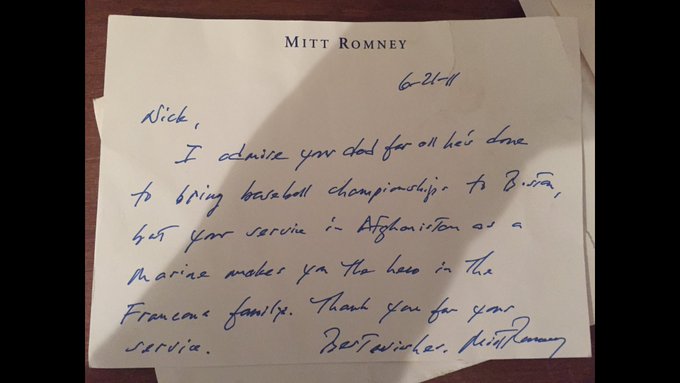 MITT ROMNEY
6-21-11
Nick,
I admire your dad for all he's done
to bring baseball championships to Boston,
but your service in Afghanistan as a
Marine makes you the hero in the
Francona family. Thank you for your
service. Best wishes, Mitt Romney